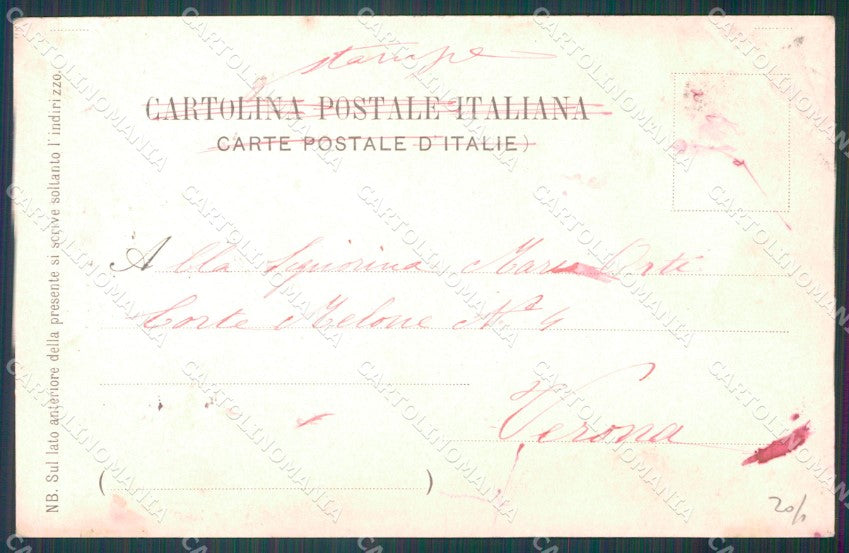 stampe
CARTOLINA POSTALE ITALIANA
CARTE POSTALE D'ITALIE)
Alla Signorina Maria Orti
Corte Melone Nº 4
Verona
NB. Sul lato anteriore della presente si scrive soltanto l'indirizzo.
(
)
20/1
CARTOLINOMANIA